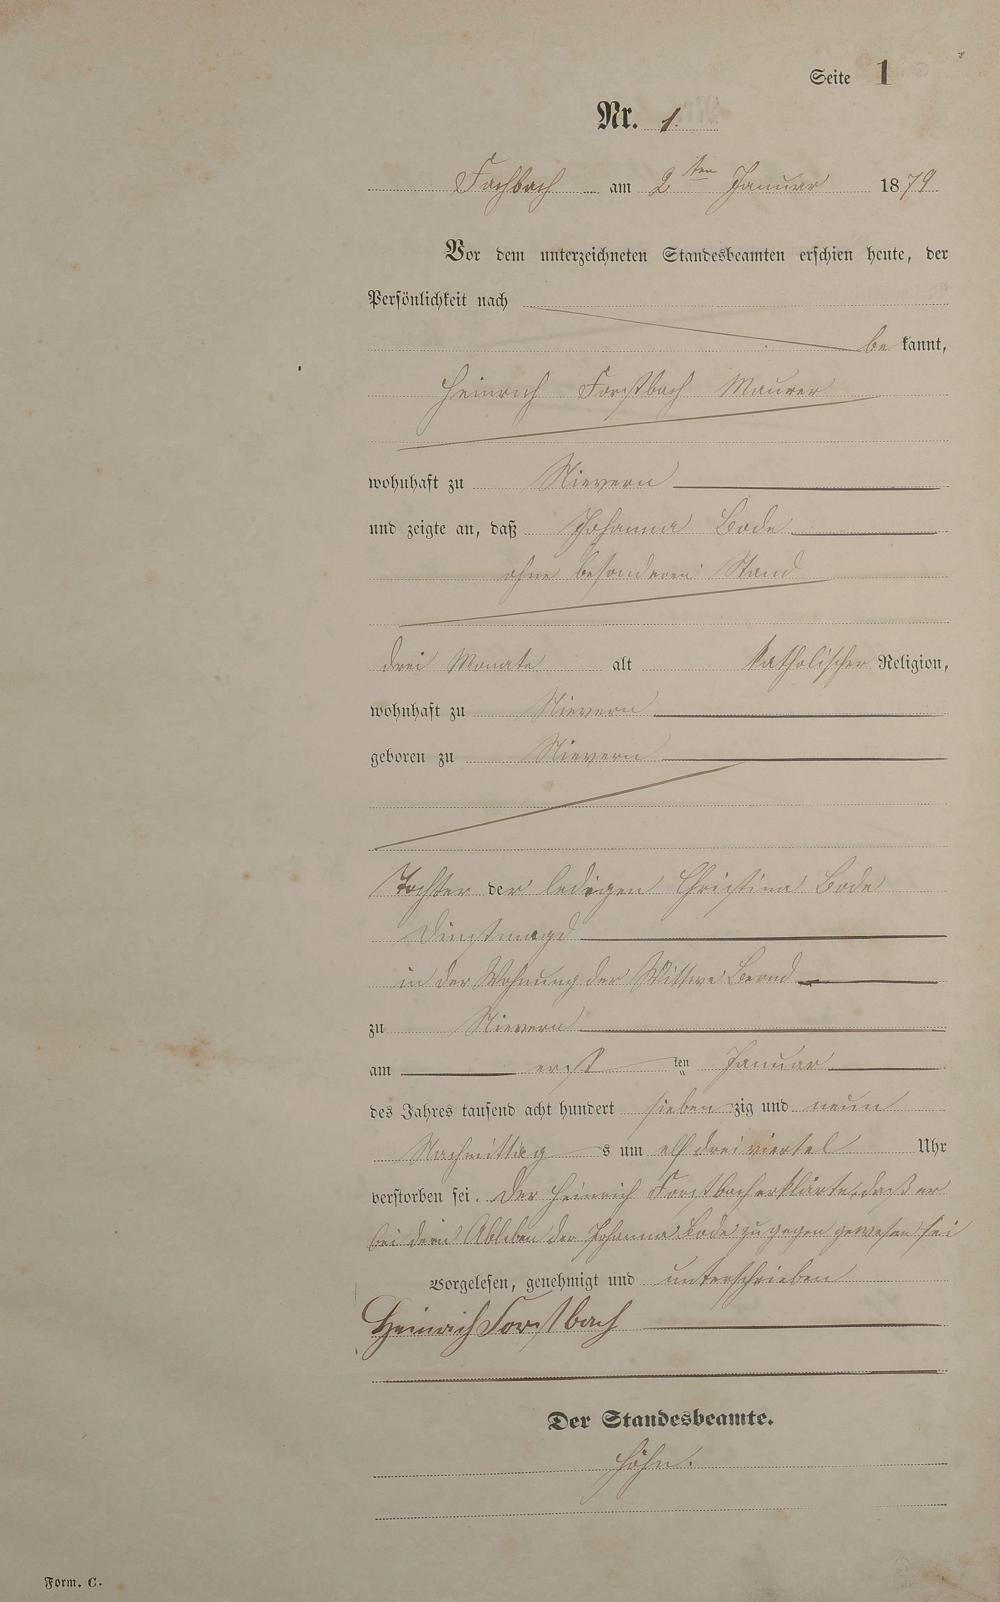 Seite 1
Nr. 1.
Fachbach am 2ten Januar 1879
Vor dem unterzeichneten Standesbeamten erschien heute, der
Persönlichkeit nach
bekannt,
Heinrich Forstbach Maurer
wohnhaft zu Nievern
und zeigte an, daß Johanna Bode
ohne besonderen Stand
drei Monate alt katholischer Religion,
wohnhaft zu Nievern
geboren zu Nievern
Tochter der ledigen Christina Bode
Dinstmagd
in der Wohnung der Wittwe Bernd
zu Nievern
am erst ten Januar
des Jahres tausend acht hundert siebenzig und neun
Nachmittags um elf dreiviertel Uhr
verstorben sei. Der Heinrich Forstbach erklärte, daß er
bei dem Ableben der Johanna Bode zugegen gewesen sei
Vorgelesen, genehmigt und unterschrieben
Heinrich Forstbach
Der Standesbeamte.
Höhn.
Form. C.